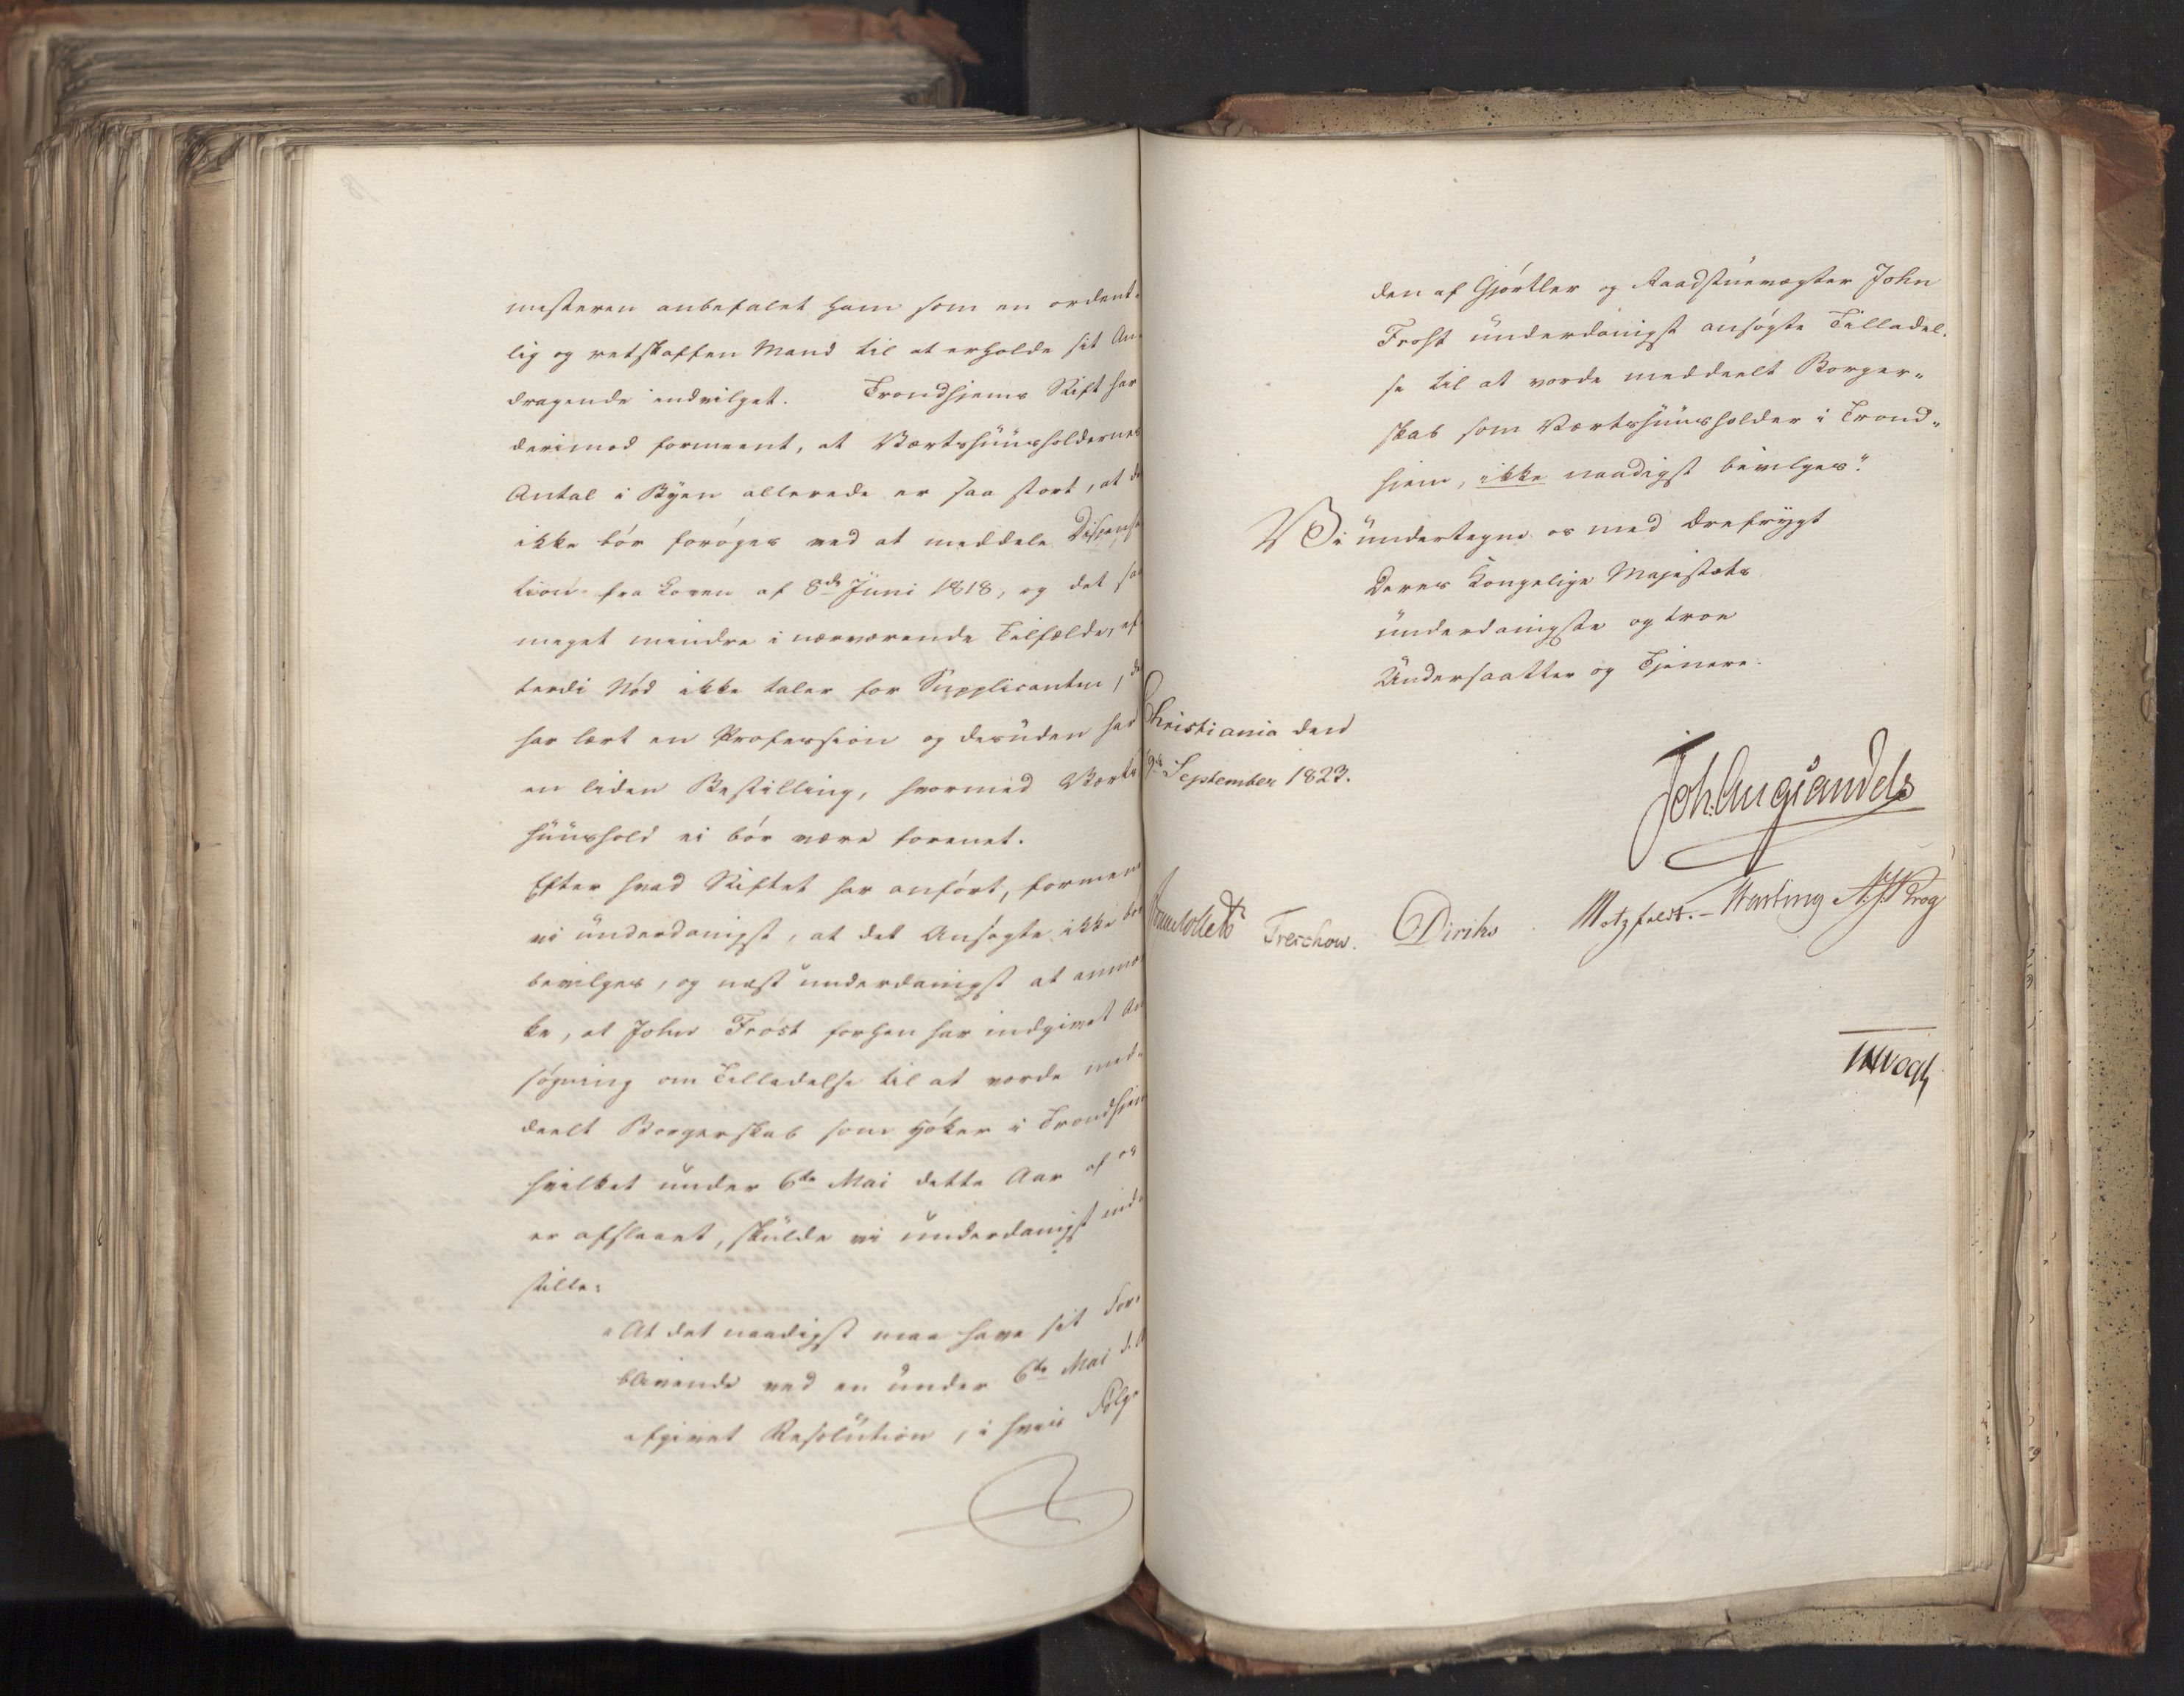 mesteren anbefalet ham som en ordent-
lig og retskaffen Mand til at erholde sit An-
dragende indvilget. Trondhjems Stift har
derimod formeent, at Værtshuusholdernes
Antal i Byen allerede er saa stort, at de
ikke bør forøges ved at meddele Dispensa
tion fra Loven af 8de Juni 1818, og det saa
meget mindre i nærværende Tilfælde, ef
terdi Nød ikke taler for Supplicanten, der
har lært en Profession og desuden har
en liden Bestilling, hvormed Værts
huushold ei bør være forenet.
Efter hvad Stiftet har anført, formene
vi underdanigst, at det Ansøgte ikke bør
bevilges, og næst underdanigst at anmær
ke, at John Frost forhen har indgivet An
søgning om Tilladelse til at vorde med-
deelt Borgerskab som Høker i Trondhjem
hvilket under 6te Mai dette Aar af os
er afslaaet, skulde vi underdanigst ind-
stille:
"At det naadigst maa have sit For-
blivende ved en under 6te Mai d. A
afgivet Resolution, i hvis Følge
den af Gjørtler og Raadstuevægter John
Frost underdanigst ansøgte Tilladel-
se til at vorde meddeelt Borger-
skab som Værtshuusholder i Trond-
hjem, ikke naadigst bevilges."
Vi undertegne os med Ærefrygt
Deres Kongelige Majestæts
underdanigste og troe
Undersaatter og Tjenere.
Christiania den
9de September 1823.
Joh. Aug Sandels
Treschow. Diriks Motzfeldt. Krog
Vogt